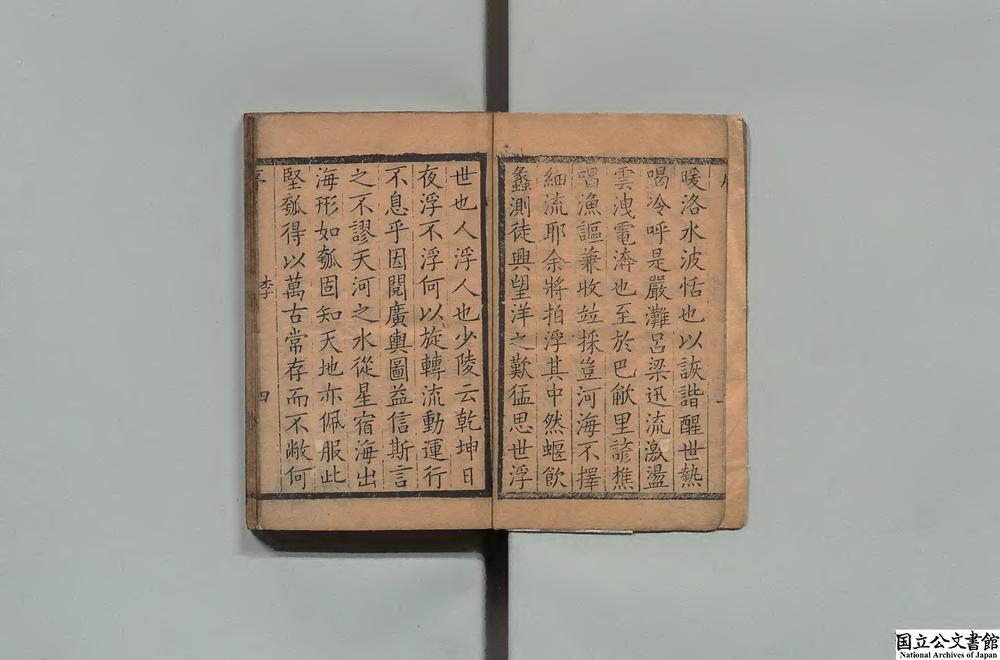 暖洛水波恬也以詼諧醒世熱
喝冷呼是嚴灘呂梁迅流激盪
雲洩電濟也至於巴歈里諺樵
唱漁謳兼收竝採豈河海不擇
細流耶余將拍浮其中然蝘飲
蠡測徒興望洋之歎猛思世浮
世也人浮人也少陵云乾坤日
夜浮不浮何以旋轉流動運行
不息乎因閱廣輿圖益信斯言
之不謬天河之水從星宿海出
海形如瓠固知天地亦佩服此
堅瓠得以萬古常存而不敝何
序
李
四
国立公文書館
National Archives of Japan